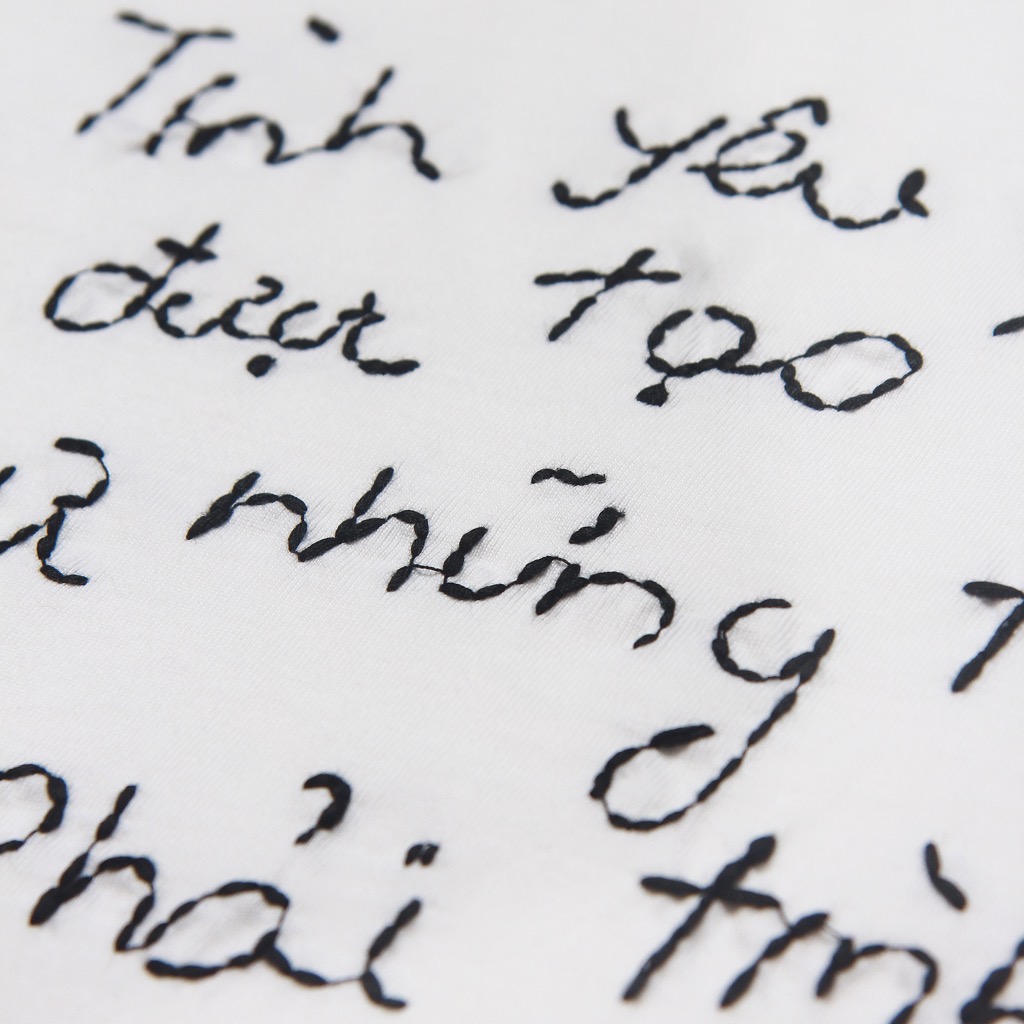 Tình yêu
được tạo
những
phải tìn